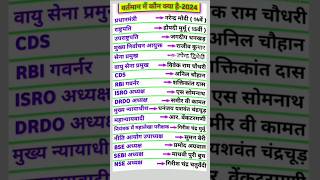 वर्तमान में कौन क्या है-2024
प्रधानमंत्री → नरेन्द्र मोदी ( 14वें )
राष्ट्रपति → द्रौपदी मुर्मू ( 15वीं )
उपराष्ट्रपति → जगदीप धनखड़
मुख्य निर्वाचन आयुक्त → राजीव कुमार
सेना प्रमुख → उपेन्द्र द्विवेदी
वायु सेना प्रमुख → विवेक राम चौधरी
CDS → अनिल चौहान
RBI गवर्नर → शक्तिकांत दास
ISRO अध्यक्ष → एस सोमनाथ
DRDO अध्यक्ष → समीर वी कामत
मुख्य न्यायाधीश → धनंजय यशवंत चंद्रचूड़
महान्यायवादी → आर. वेंकटरमणी
नियंत्रक में महालेखा परीक्षक → गिरीश चंद्र मुर्मू
नीति आयोग उपाध्यक्ष → सुमन बेरी
BSE अध्यक्ष → प्रमोद अग्रवाल
SEBI अध्यक्ष → माधबी पुरी बुच
NSE अध्यक्ष → गिरीश चंद्र चतुर्वेदी
वायु सेना प्रमुख
राम चौधरी
CDS
अनिल चौहान
RBI गवर्नर
ISRO अध्यक्ष
एस सोमनाथ
DRDO अध्यक्ष
वी कामत
मुख्य न्यायाधीश
यशवंत चंद्रचूड़